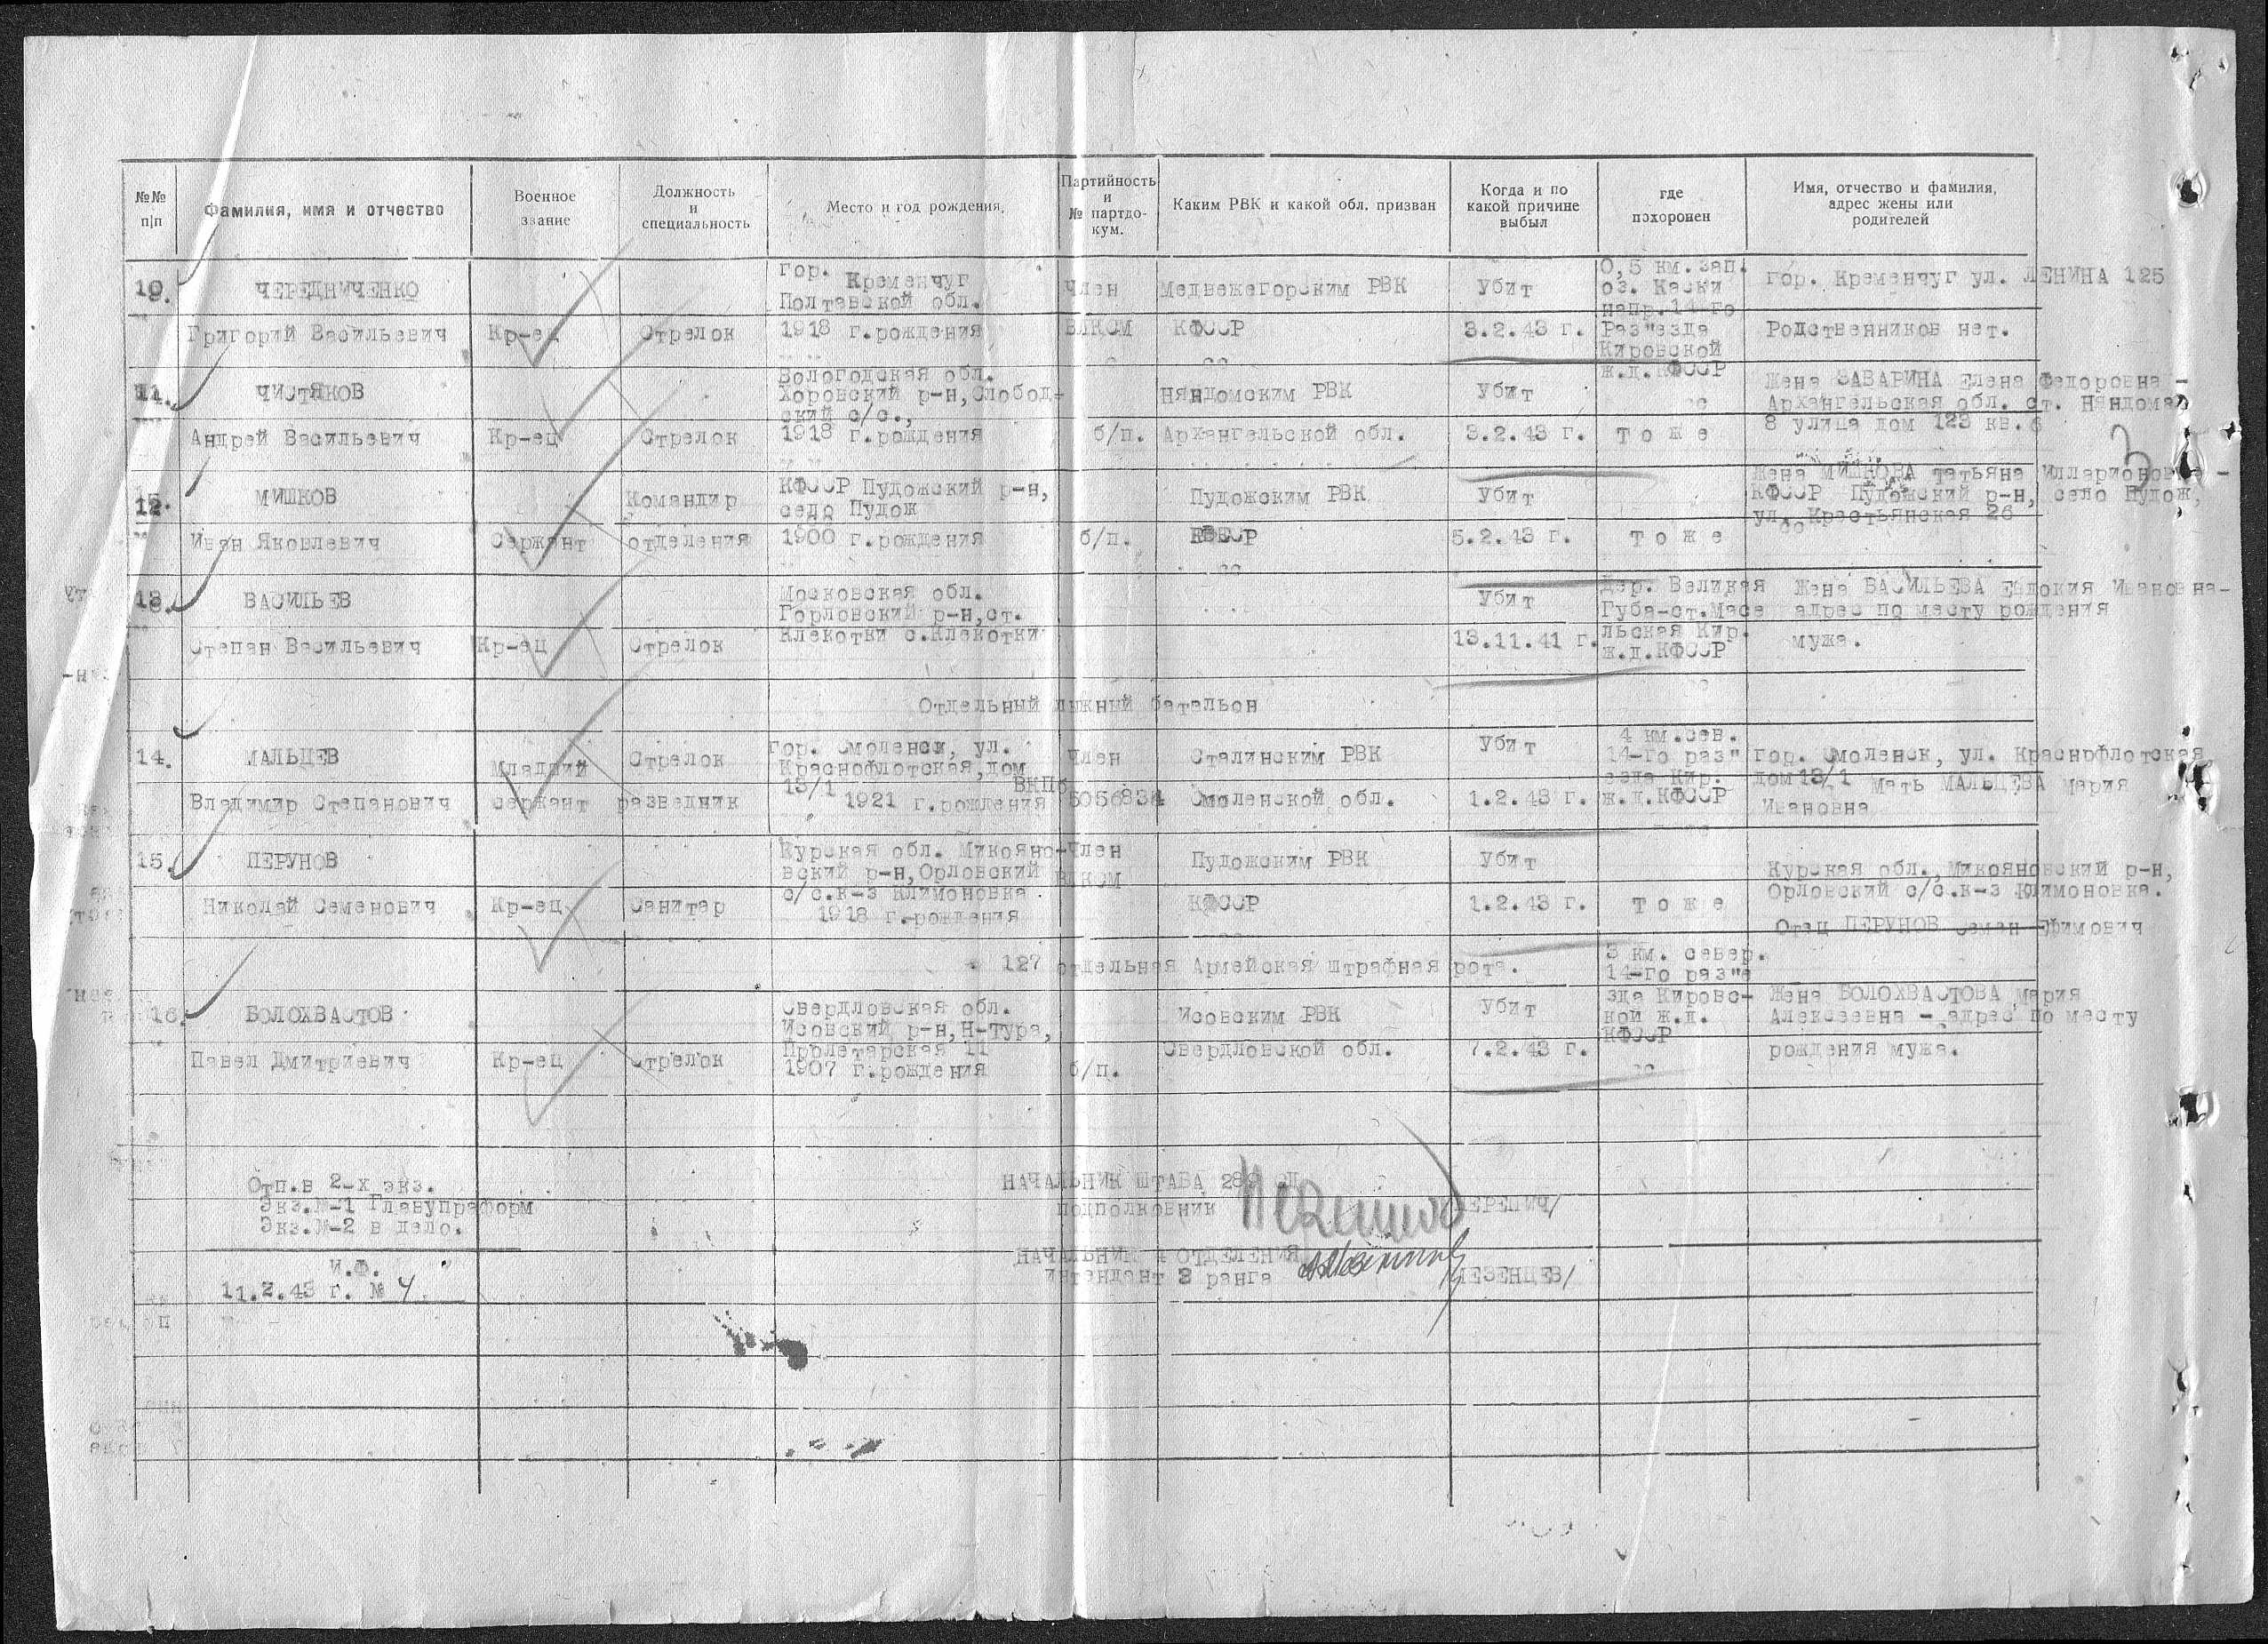 №№ п|п
Фамилия, имя и отчество
Военное звание
Должность и специальность
Место и год рождения,
Партийность и № партдо-кум.
Каким РВК и какой обл. призван
Когда и по какой причине выбыл
где похоронен
Имя, отчество и фамилия, адрес жены или родителей
10.
ЧЕРЕДНИЧЕНКО
Григорий Васильевич
Кр-ец
Стрелок
гор. Кременчуг
Полтавской обл.
1918 г.рождения
Член
ВЛКСМ
Медвежегорским РВК
КФССР
Убит
3.2.43 г.
0,5 км.зап.
оз. Каски
напр.14-го
Раз"езда
Кировской
ж.д.КФССР
гор. Кременчуг ул. ЛЕНИНА 125
Родственников нет.
11.
ЧИСТЯКОВ
Андрей Васильевич
Кр-ец
Стрелок
Вологодская обл.
Хоровский р-н,Слобод-
ский с/с.,
1918 г.рождения
б/п.
Няндомским РВК
Архангельской обл.
Убит
3.2.43 г.
Тоже
Жена ЗАВАРИНА Елена Федоровна -
Архангельская обл. ст. Няндома
8 улица дом 123 кв.6
12.
МИШКОВ
Иван Яковлевич
Сержант
Командир
отделения
КФССР Пудожский р-н,
село Пудож
1900 г.рождения
б/п.
Пудожским РВК
КФССР
Убит
5.2.43 г.
Тоже
Жена МИШКОВА Татьяна Илларионовна -
КФССР Пудожский р-н, село Пудож,
ул. Крестьянская 26
13.
ВАСИЛЬЕВ
Степан Васильевич
Кр-ец
Стрелок
Московская обл.
Горловский р-н,ст.
Клекотки с.Клекотки
Убит
13.11.41 г.
дер. Великая
Губа-ст.Масе
льская Кир.
ж.д.КФССР
Жена ВАСИЛЬЕВА Евдокия Ивановна-
адрес по месту рождения
мужа.
Отдельный лыжный батальон
14.
МАЛЬЦЕВ
Владимир Степанович
Младший
сержант
Стрелок
разведчик
гор. Смоленск, ул.
Краснофлотская,дом
13/1
1921 г.рождения
Член
ВКПб
5056834
Сталинским РВК
Смоленской обл.
Убит
1.2.43 г.
4 км.сев.
14-го раз"
езда Кир.
ж.д.КФССР
гор. Смоленск, ул. Краснофлотская
дом 13/1 Мать МАЛЬЦЕВА Мария
Ивановна
15.
ПЕРУНОВ
Николай Семенович
Кр-ец
Санитар
Курская обл. Микояно-
вский р-н,Орловский
с/с.к-з Климоновка
1918 г.рождения
Член
ВЛКСМ
Пудожским РВК
КФССР
Убит
1.2.43 г.
Тоже
Курская обл.,Микояновский р-н,
Орловский с/с.к-з Климоновка.
Отец ПЕРУНОВ Семен Ефимович
127 отдельная Армейская штрафная рота.
16.
БОЛОХВАСТОВ
Павел Дмитриевич
Кр-ец
Стрелок
Свердловская обл.
Исовский р-н,Н-Тура,
Пролетарская 11
1907 г.рождения
б/п.
Исовским РВК
Свердловской обл.
Убит
7.2.43 г.
3 км. север.
14-го раз"е
зда Кировс-
кой ж.д.
КФССР
Жена БОЛОХВАСТОВА Мария
Алексеевна - адрес по месту
рождения мужа.
Отп.в 2-х экз.
Экз.№-1 Главупраформ
Экз.№-2 в дело.
И.Ф.
11.2.43 г. № 4.
НАЧАЛЬНИК ШТАБА 289 СД
подполковник /ЧЕРЕПИЧ/
НАЧАЛЬНИК 4 ОТДЕЛЕНИЯ
интендант 3 ранга /МЕЗЕНЦЕВ/